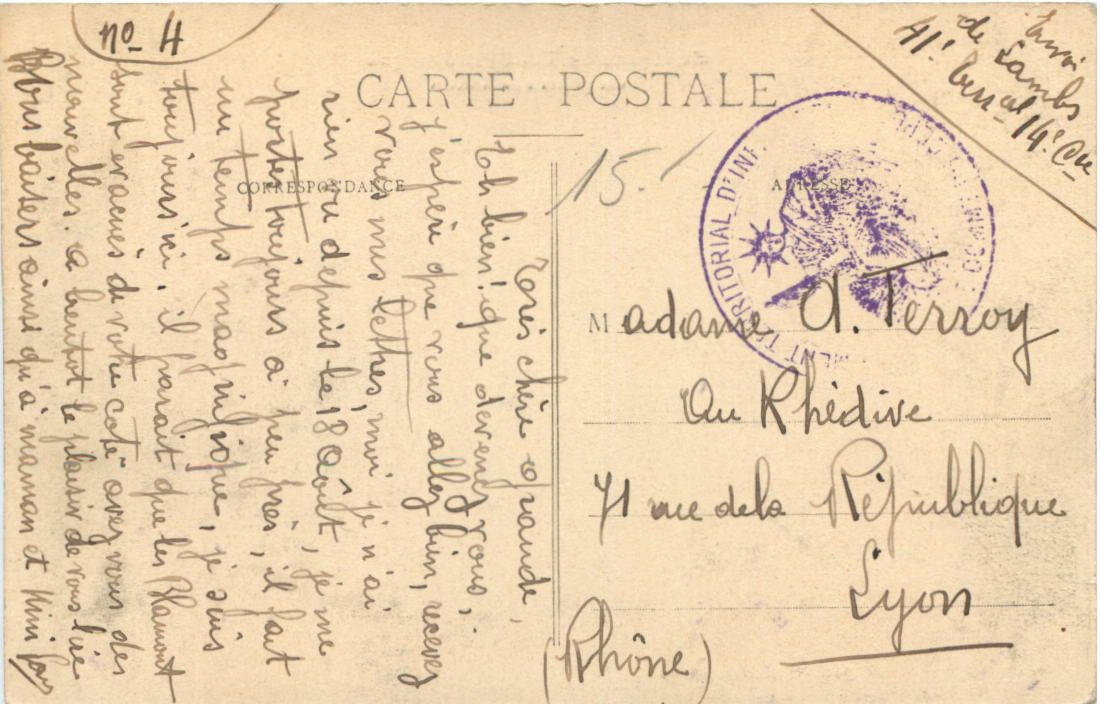 no 4
CARTE POSTALE
CORRESPONDANCE
ADRESSE
Envoi
de Lambs
41e terr al 14e Cie
15.
TERRITORIAL D'INF
Très chère grande,
Eh bien! que devenez vous,
j'espère que vous allez bien, recevez
vous mes lettres, moi je n'ai
rien eu depuis le 18 Août, je me
porte toujours à peu près, il fait
un temps magnifique, je suis
toujours ici. il parait que les Blamont
sont évacués de votre coté avez vous des
nouvelles. a bientot le plaisir de vous lire
Bons baisers ainsi qu'à maman et
Madame A. Terroy
Au Khédive
71 rue de la République
Lyon
(Rhône)